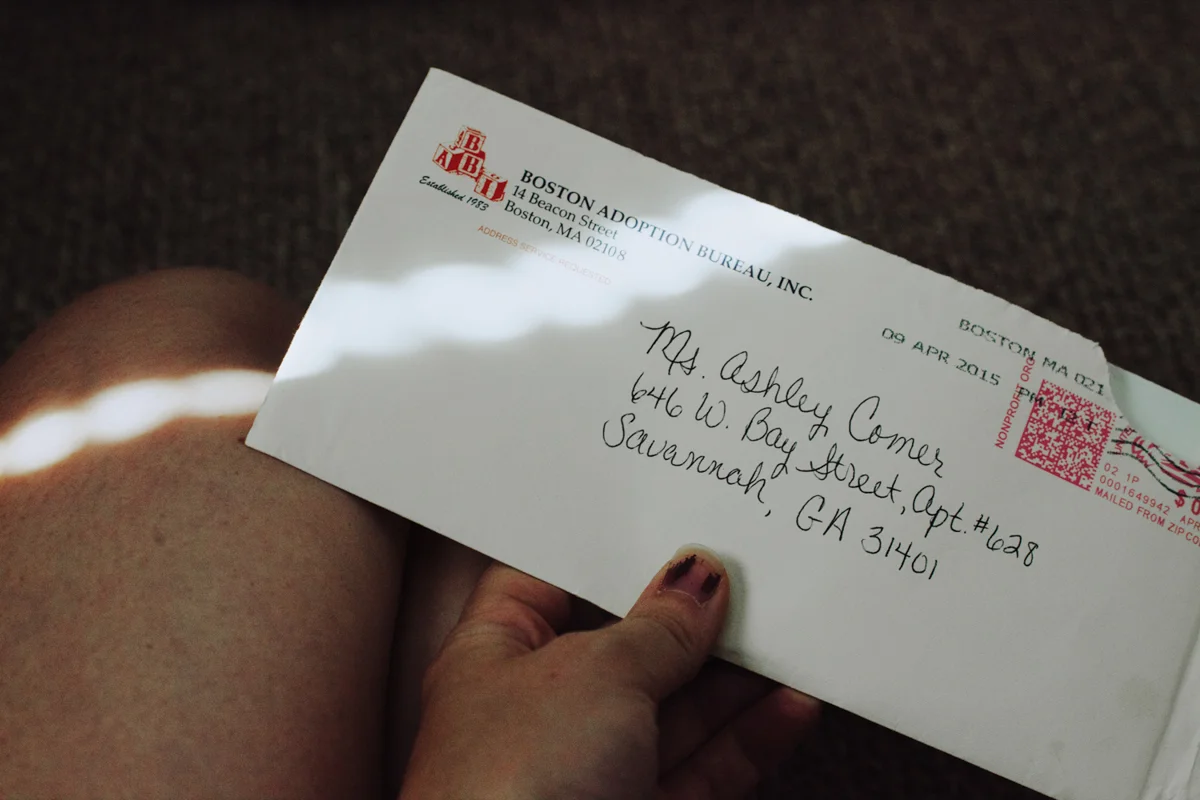 B
A B I
Established 1983
BOSTON ADOPTION BUREAU, INC.
14 Beacon Street
Boston, MA 02108
ADDRESS SERVICE REQUESTED
BOSTON MA 021
09 APR 2015 PM 13 L
NONPROFIT ORG
02 1P
0001649942 APR
MAILED FROM ZIP CO
Ms. Ashley Comer
646 W. Bay Street, Apt. #628
Savannah, GA 31401